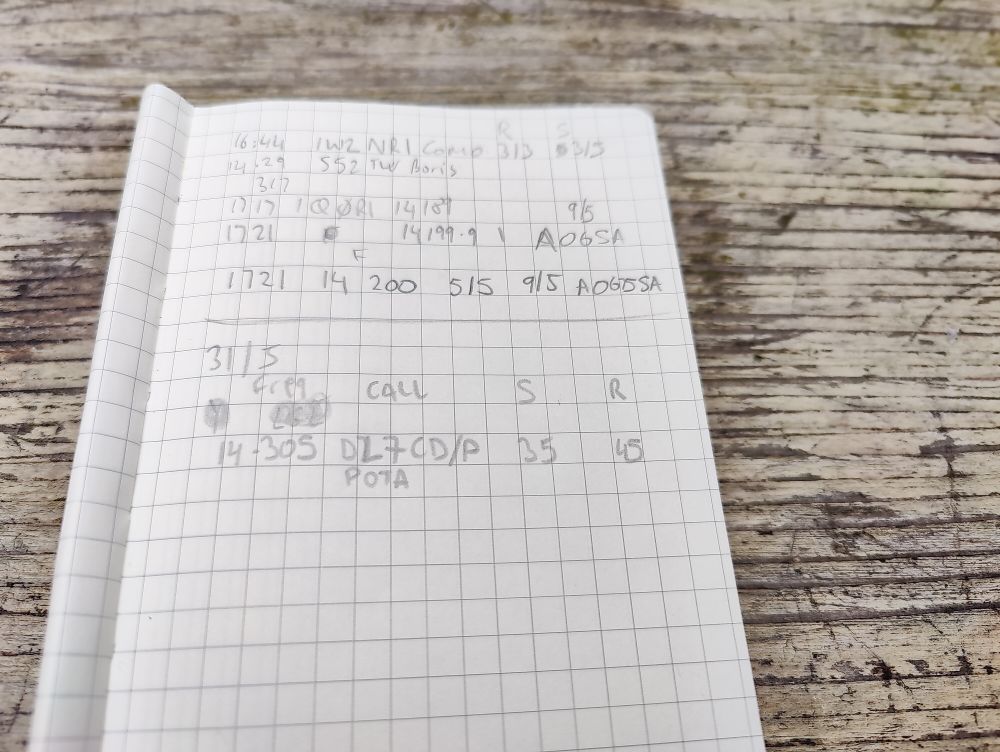 R S
16:44 IW2 NRI Como 3/3 3/5
14.29 S52 TW Boris
1717 14189 9/5
1721 14199.9 AO6SA
F
1721 14 200 5/5 9/5 AO65SA
31/5
freq CALL S R
14.305 DL7CD/P 35 45
POTA